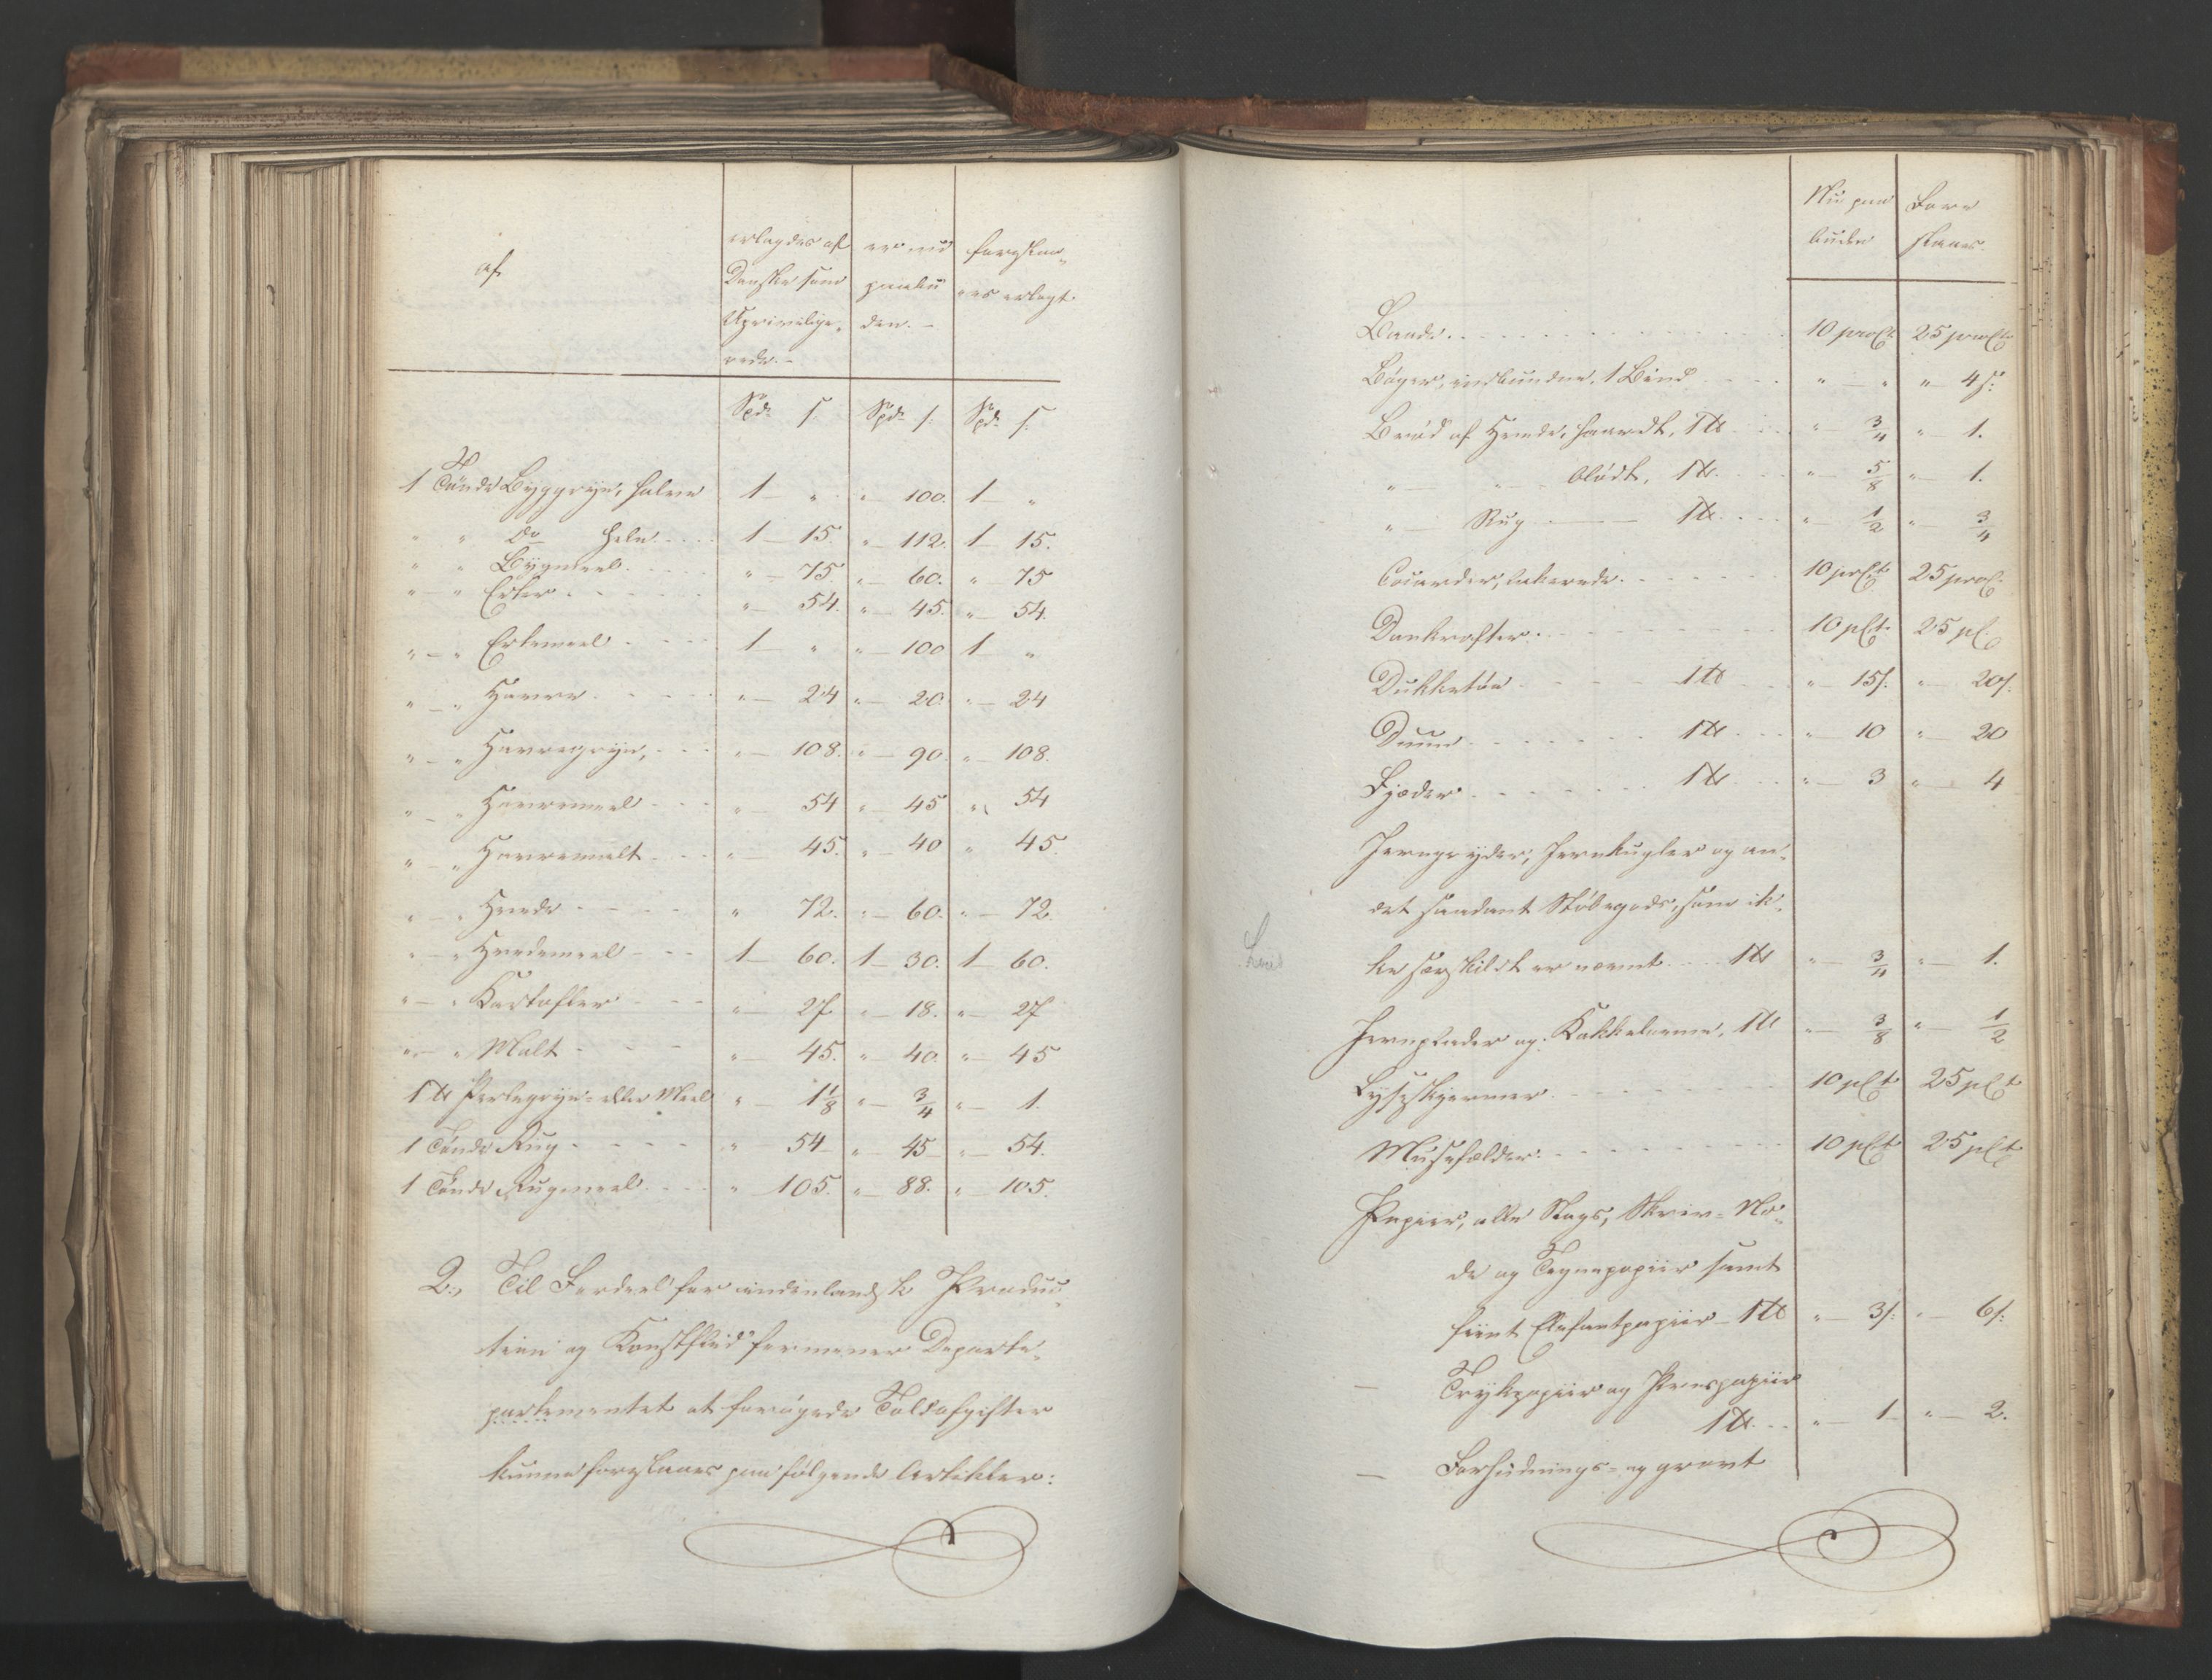 af
erlagdes af Danske som Uprivilige-rede. –
er nu paabu den. –
foreslaa-es erlagt.
Spd. s. Spd. s. Spd. s.
1 Tønde Byggryn, halve 1 " " 100. 1 "
" " Do hele 1 15. " 112. 1 15.
" " Bygmeel " 75 " 60. " 75
" " Erter " 54. " 45. " 54.
" " Ertemeel 1 " " 100 1 "
" " Havre " 24 " 20. " 24
" " Havregryn, " 108. " 90. " 108.
" " Havremeel " 54 " 45 " 54
" " Havremalt " 45. " 40 " 45.
" " Hvede " 72. " 60. " 72.
" " Hvedemeel 1 60. 1 30. 1 60.
" " Kartofler " 27 " 18. " 27
" " Malt " 45. " 40 " 45
1 ℔ Perlegryn- eller Meel " 1⅛ " ¾ " 1.
1 Tønde Rug " 54 " 45 " 54.
1 Tønde Rugmeel " 105. " 88. " 105.
2., Til Fordeel for indenlandsk Produc-
tion og Konstflid formener Departe-
partementet at forøgede Toldafgifter
kunne foreslaaes paa følgende Artikler:
Nu paa buden
Fore slaaes.
Baand 10 proCt. 25 proCt.
Bøger, indbundne, 1 Bind " " " 4 s.
Brød af Hvede, haardt, 1 ℔ " ¾ " 1.
" " blødt, 1 ℔ " ⅝ " 1.
" Rug 1 ℔ " ½ " ¾
Cocarder, lakerede 10 prCt. 25 proC.
Dunkrafter 10 pCt. 25 pC.
Dukketøi 1 ℔ " 15 s. " 20 s.
Duun 1 ℔ " 10 " 20
Fjæder 1 ℔ " 3 " 4
Jerngryder, Jernkugler og an-
det saadant Støbegods, som ik-
ke særskildt er nævnt 1 ℔ " ¾ " 1.
Jernplader og Kakkelovne, 1 ℔ " ⅜ " ½
Lyseskjermer 10 pCt 25 pCt
Musefælder 10 pCt 25 pCt
Papiir, alle Slags, Skriv- No-
de og Tegnepapiir samt
fiint Elefantpapiir 1 ℔ " 3 s. " 6 s.
— Trykpapiir og Prespapiir
1 ℔ " 1 " 2.
— Forhudnings- og grovt